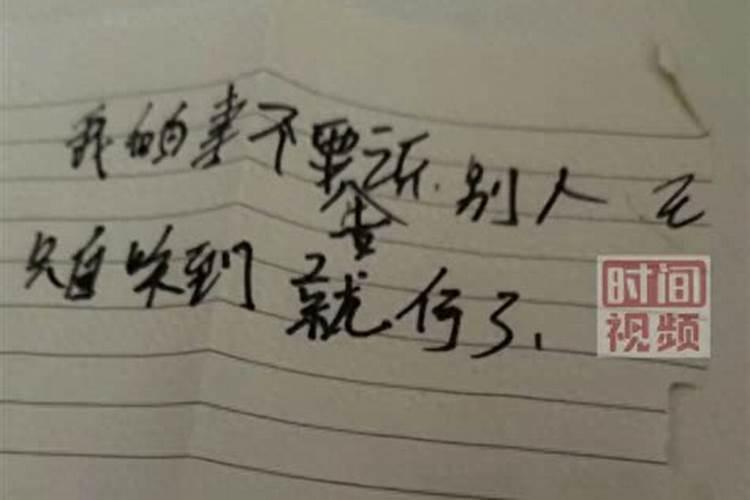 我的事不要告诉别人
只自到就行了.
时间
视频